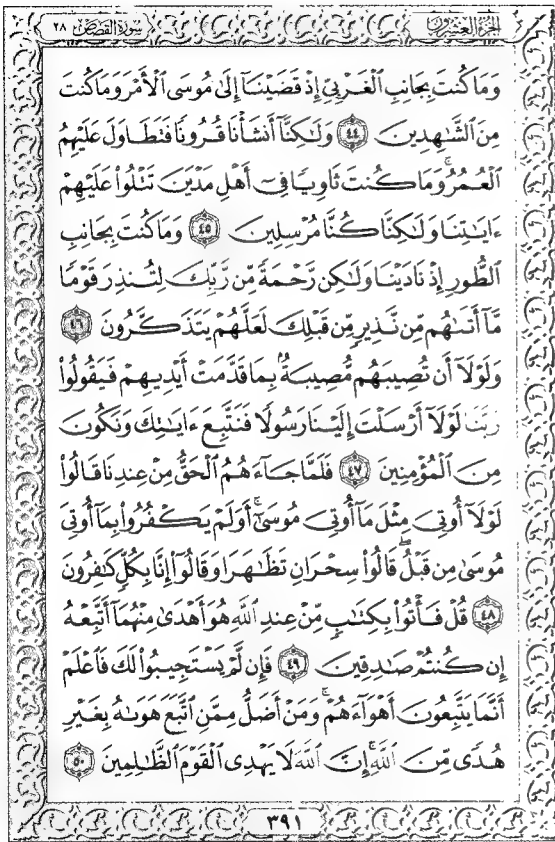 الجزء العشرون سورة القصص ٢٨
وَمَا كُنتَ بِجَانِبِ ٱلْغَرْبِيِّ إِذْ قَضَيْنَآ إِلَىٰ مُوسَى ٱلْأَمْرَ وَمَا كُنتَ
مِنَ ٱلشَّٰهِدِينَ ٤٤ وَلَٰكِنَّآ أَنشَأْنَا قُرُونًا فَتَطَاوَلَ عَلَيْهِمُ
ٱلْعُمُرُ ۚ وَمَا كُنتَ ثَاوِيًا فِىٓ أَهْلِ مَدْيَنَ تَتْلُوا۟ عَلَيْهِمْ
ءَايَٰتِنَا وَلَٰكِنَّا كُنَّا مُرْسِلِينَ ٤٥ وَمَا كُنتَ بِجَانِبِ
ٱلطُّورِ إِذْ نَادَيْنَا وَلَٰكِن رَّحْمَةً مِّن رَّبِّكَ لِتُنذِرَ قَوْمًا
مَّآ أَتَىٰهُم مِّن نَّذِيرٍ مِّن قَبْلِكَ لَعَلَّهُمْ يَتَذَكَّرُونَ ٤٦
وَلَوْلَآ أَن تُصِيبَهُم مُّصِيبَةٌۢ بِمَا قَدَّمَتْ أَيْدِيهِمْ فَيَقُولُوا۟
رَبَّنَا لَوْلَآ أَرْسَلْتَ إِلَيْنَا رَسُولًا فَنَتَّبِعَ ءَايَٰتِكَ وَنَكُونَ
مِنَ ٱلْمُؤْمِنِينَ ٤٧ فَلَمَّا جَآءَهُمُ ٱلْحَقُّ مِنْ عِندِنَا قَالُوا۟
لَوْلَآ أُوتِىَ مِثْلَ مَآ أُوتِىَ مُوسَىٰٓ ۚ أَوَلَمْ يَكْفُرُوا۟ بِمَآ أُوتِىَ
مُوسَىٰ مِن قَبْلُ ۖ قَالُوا۟ سِحْرَانِ تَظَٰهَرَا وَقَالُوٓا۟ إِنَّا بِكُلٍّ كَٰفِرُونَ
٤٨ قُلْ فَأْتُوا۟ بِكِتَٰبٍ مِّنْ عِندِ ٱللَّهِ هُوَ أَهْدَىٰ مِنْهُمَآ أَتَّبِعْهُ
إِن كُنتُمْ صَٰدِقِينَ ٤٩ فَإِن لَّمْ يَسْتَجِيبُوا۟ لَكَ فَٱعْلَمْ
أَنَّمَا يَتَّبِعُونَ أَهْوَآءَهُمْ ۚ وَمَنْ أَضَلُّ مِمَّنِ ٱتَّبَعَ هَوَىٰهُ بِغَيْرِ
هُدًى مِّنَ ٱللَّهِ ۚ إِنَّ ٱللَّهَ لَا يَهْدِى ٱلْقَوْمَ ٱلظَّٰلِمِينَ ٥٠
٣٩١